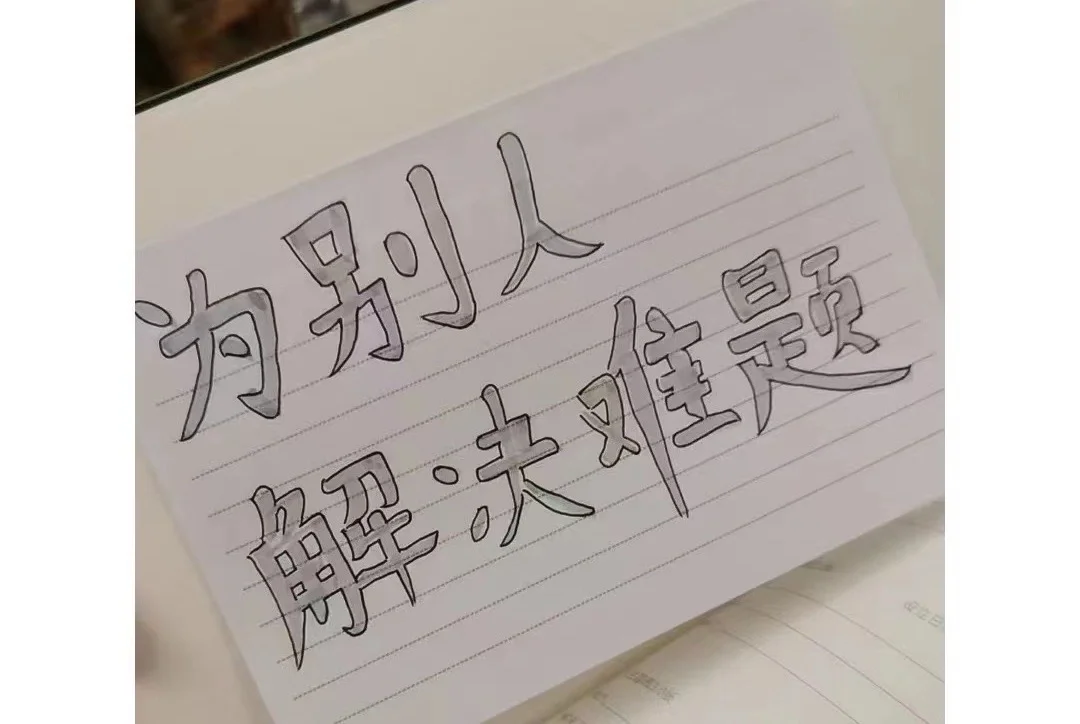 为别人
解决难题